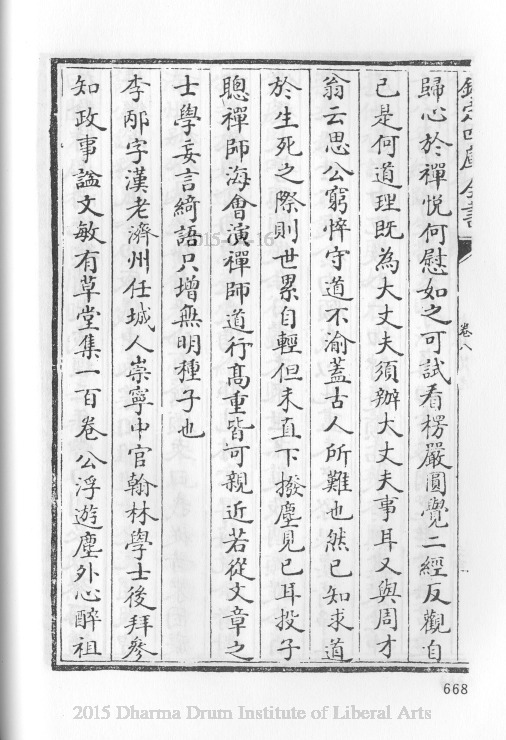 欽定四庫全書
卷八
歸心於禪悅何慰如之可試看楞嚴圓覺二經反觀自
己是何道理既為大丈夫須辦大丈夫事耳又與周才
翁云思公窮悴守道不渝蓋古人所難也然已知求道
於生死之際則世累自輕但未直下撥塵見已耳投子
聰禪師海㑹演禪師道行髙重皆可親近若從文章之
士學妄言綺語只增無明種子也
李邴字漢老濟州任城人崇寧中官翰林學士後拜參
知政事諡文敏有草堂集一百卷公浮遊塵外心醉祖
2015-
-16
668
2015 Dharma Drum Institute of Liberal Arts